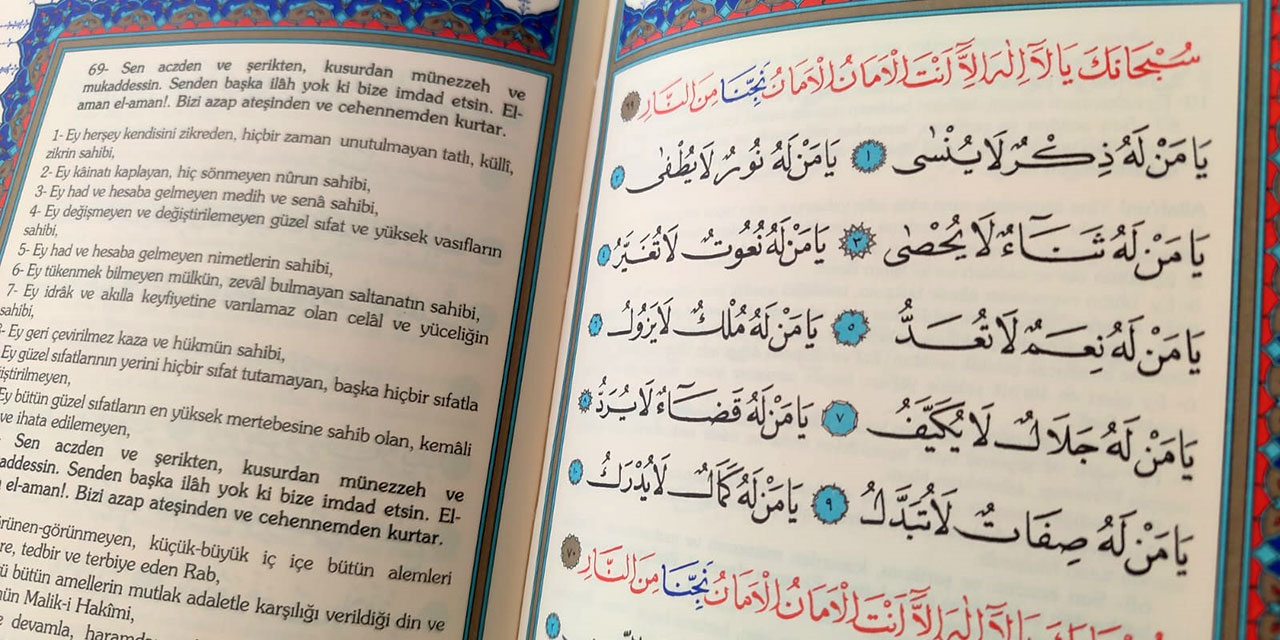 69- Sen aczden ve şerikten, kusurdan münezzeh ve
mukaddessin. Senden başka ilâh yok ki bize imdad etsin. El-
aman el-aman!. Bizi azap ateşinden ve cehennemden kurtar.
1- Ey herşey kendisini zikreden, hiçbir zaman unutulmayan tatlı, küllî,
zikrin sahibi,
2- Ey kâinatı kaplayan, hiç sönmeyen nûrun sahibi,
3- Ey had ve hesaba gelmeyen medih ve senâ sahibi,
4- Ey değişmeyen ve değiştirilemeyen güzel sıfat ve yüksek vasıfların
sahibi,
5- Ey had ve hesaba gelmeyen nimetlerin sahibi,
6- Ey tükenmek bilmeyen mülkün, zevâl bulmayan saltanatın sahibi,
7- Ey idrâk ve akılla keyfiyetine varılamaz olan celâl ve yüceliğin
sahibi,
- Ey geri çevirilmez kaza ve hükmün sahibi,
Ey güzel sıfatlarının yerini hiçbir sıfat tutamayan, başka hiçbir sıfatla
iştirilmeyen,
Ey bütün güzel sıfatların en yüksek mertebesine sahib olan, kemâli
ve ihata edilemeyen,
Sen aczden ve şerikten, kusurdan münezzeh ve
addessin. Senden başka ilâh yok ki bize imdad etsin. El-
el-aman!. Bizi azap ateşinden ve cehennemden kurtar.
örünen-görünmeyen, küçük-büyük iç içe bütün alemleri
re, tedbir ve terbiye eden Rab,
ü bütün amellerin mutlak adaletle karşılığı verildiği din ve
nün Malik-i Hakîmi,
devamla, haramdan
سُبْحَانَكَ يَا لَآ اِلٰهَ اِلَّآ اَنْتَ الْاَمَانُ الْاَمَانُ نَجِّنَا مِنَ النَّارِ ٦٩
يَا مَنْ لَهُ ذِكْرٌ لَا يُنْسٰى ١ يَا مَنْ لَهُ نُورٌ لَا يُطْفٰى ٢
يَا مَنْ لَهُ ثَنَآءٌ لَا يُحْصٰى ٣ يَا مَنْ لَهُ نُعُوتٌ لَا تُغَيَّرُ ٤
يَا مَنْ لَهُ نِعَمٌ لَا تُعَدُّ ٥ يَا مَنْ لَهُ مُلْكٌ لَا يَزُولُ ٦
يَا مَنْ لَهُ جَلَالٌ لَا يُكَيَّفُ ٧ يَا مَنْ لَهُ قَضَآءٌ لَا يُرَدُّ ٨
يَا مَنْ لَهُ صِفَاتٌ لَا تُبَدَّلُ ٩ يَا مَنْ لَهُ كَمَالٌ لَا يُدْرَكُ ١٠
سُبْحَانَكَ يَا لَآ اِلٰهَ اِلَّآ اَنْتَ الْاَمَانُ الْاَمَانُ نَجِّنَا مِنَ النَّارِ ٧٠